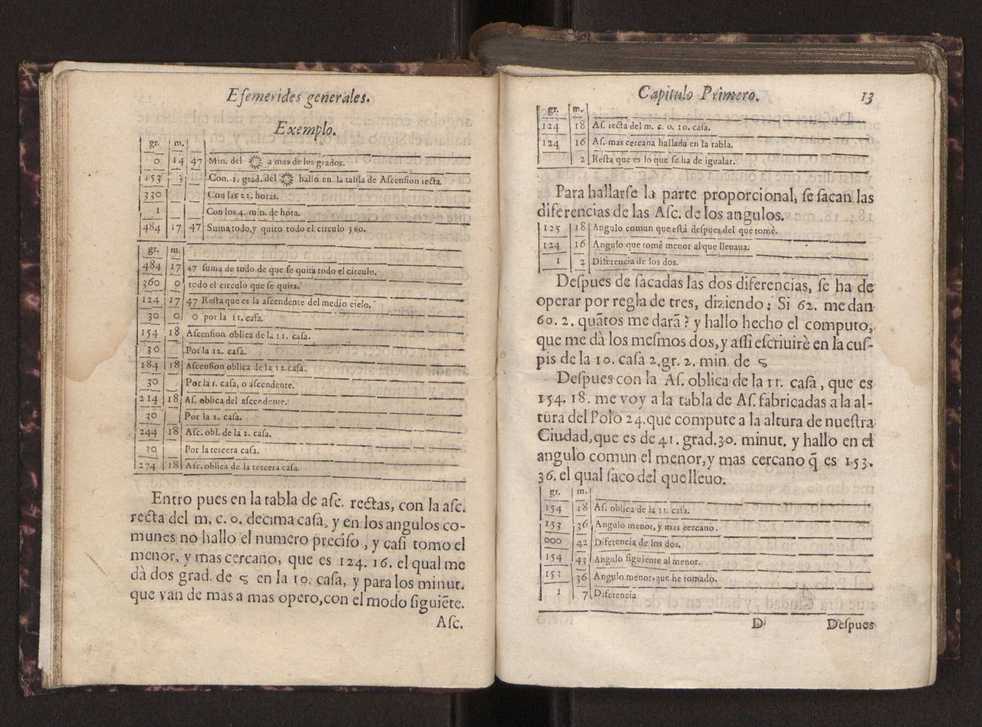 Eſemerides generales.
Exemplo.
gr. m.
0 14 47 Min. del a mas de los grados.
153 3 Con. 1. grad. del hallo en la tabla de Aſcenſion recta.
330 Con las 22. horas.
1 Con los 4. min. de hora.
484 17 47 Suma todo, y quito todo el circulo 360.
gr. m.
484 17 47 ſuma de todo de que ſe quita todo el circulo.
360 0 todo el circulo que ſe quita.
124 17 47 Reſta que es la aſcendente del medio cielo.
30 0 0 por la 11. caſa.
154 18 Aſcenſion oblica de la 11. caſa.
30 Por la 12. caſa.
184 18 Aſcenſion oblica de la 12. caſa.
30 Por la 1. caſa, o aſcendente.
214 18 Aſ. oblica del aſcendente.
30 Por la 2. caſa.
244 18 Aſc. obl. de la 2. caſa.
30 Por la tercera caſa.
274 18 Aſc. oblica de la tercera caſa.
Entro pues en la tabla de aſc. rectas, con la aſc.
recta del m. c. o. decima caſa, y en los angulos co-
munes no hallo el numero preciſo, y caſi tomo el
menor, y mas cercano, que es 124. 16. el qual me
dà dos grad. de ♌ en la 10. caſa, y para los minut.
que van de mas a mas opero, con el modo ſiguiẽte.
Aſc.
Capitulo Primero. 13
gr. m.
124 18 Aſ. recta del m. c. o. 10. caſa.
124 16 Aſ. mas cercana hallada en la tabla.
2 Reſta que es lo que ſe ha de igualar.
Para hallarſe la parte proporcional, ſe ſacan las
diferencias de las Aſc. de los angulos.
125 18 Angulo comun que eſtà deſpues del que tomè.
124 16 Angulo que tomè menor al que lleuaua.
1 2 Diferencia de los dos.
Deſpues de ſacadas las dos diferencias, ſe ha de
operar por regla de tres, diziendo; Si 62. me dan
60. 2. quãtos me darã? y hallo hecho el computo,
que me dà los meſmos dos, y aſſi eſcriuirè en la cuſ-
pis de la 10. caſa 2. gr. 2. min. de ♌
Deſpues con la Aſ. oblica de la 11. caſa, que es
154. 18. me voy a la tabla de Aſ. fabricadas a la al-
tura del Polo 24. que compute a la altura de nueſtra
Ciudad, que es de 41. grad. 30. minut. y hallo en el
angulo comun el menor, y mas cercano q̃ es 153.
36. el qual ſaco del que lleuo.
gr. m.
154 18 Aſ. oblica de la 11. caſa.
153 36 Angulo menor, y mas cercano.
000 42 Diferencia de los dos.
154 43 Angulo ſiguiente al menor.
153 36 Angulo menor que he tomado.
1 7 Diferencia
D Deſpues